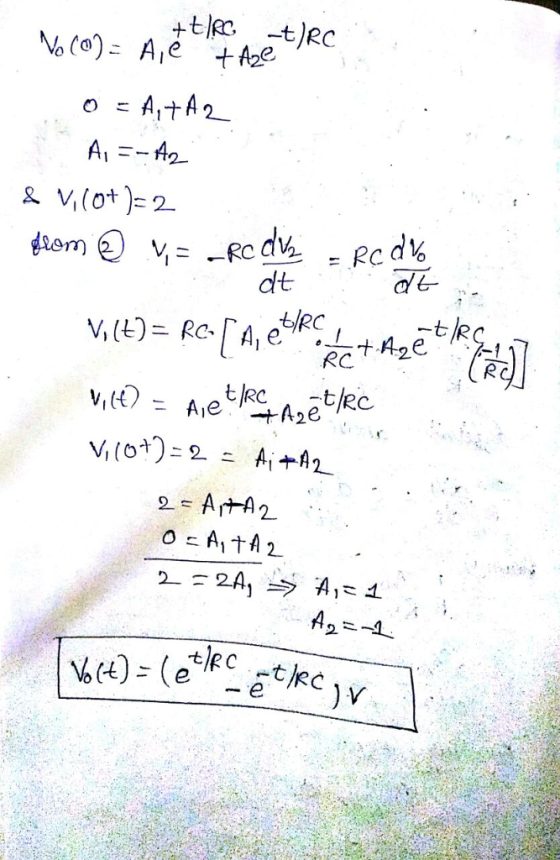 V₀(0) = A₁e^{+t/RC} + A₂e^{-t/RC}
0 = A₁ + A₂
A₁ = -A₂
& V₁(0+) = 2
from ② V₁ = -RC dV₂/dt = RC dV₀/dt
V₁(t) = RC·[A₁e^{t/RC}·1/RC + A₂e^{-t/RC}(-1/RC)]
V₁(t) = A₁e^{t/RC} - A₂e^{-t/RC}
V₁(0+) = 2 = A₁ - A₂
2 = A₁ - A₂
0 = A₁ + A₂
2 = 2A₁ ⇒ A₁ = 1
A₂ = -1
V₀(t) = (e^{t/RC} - e^{-t/RC}) V